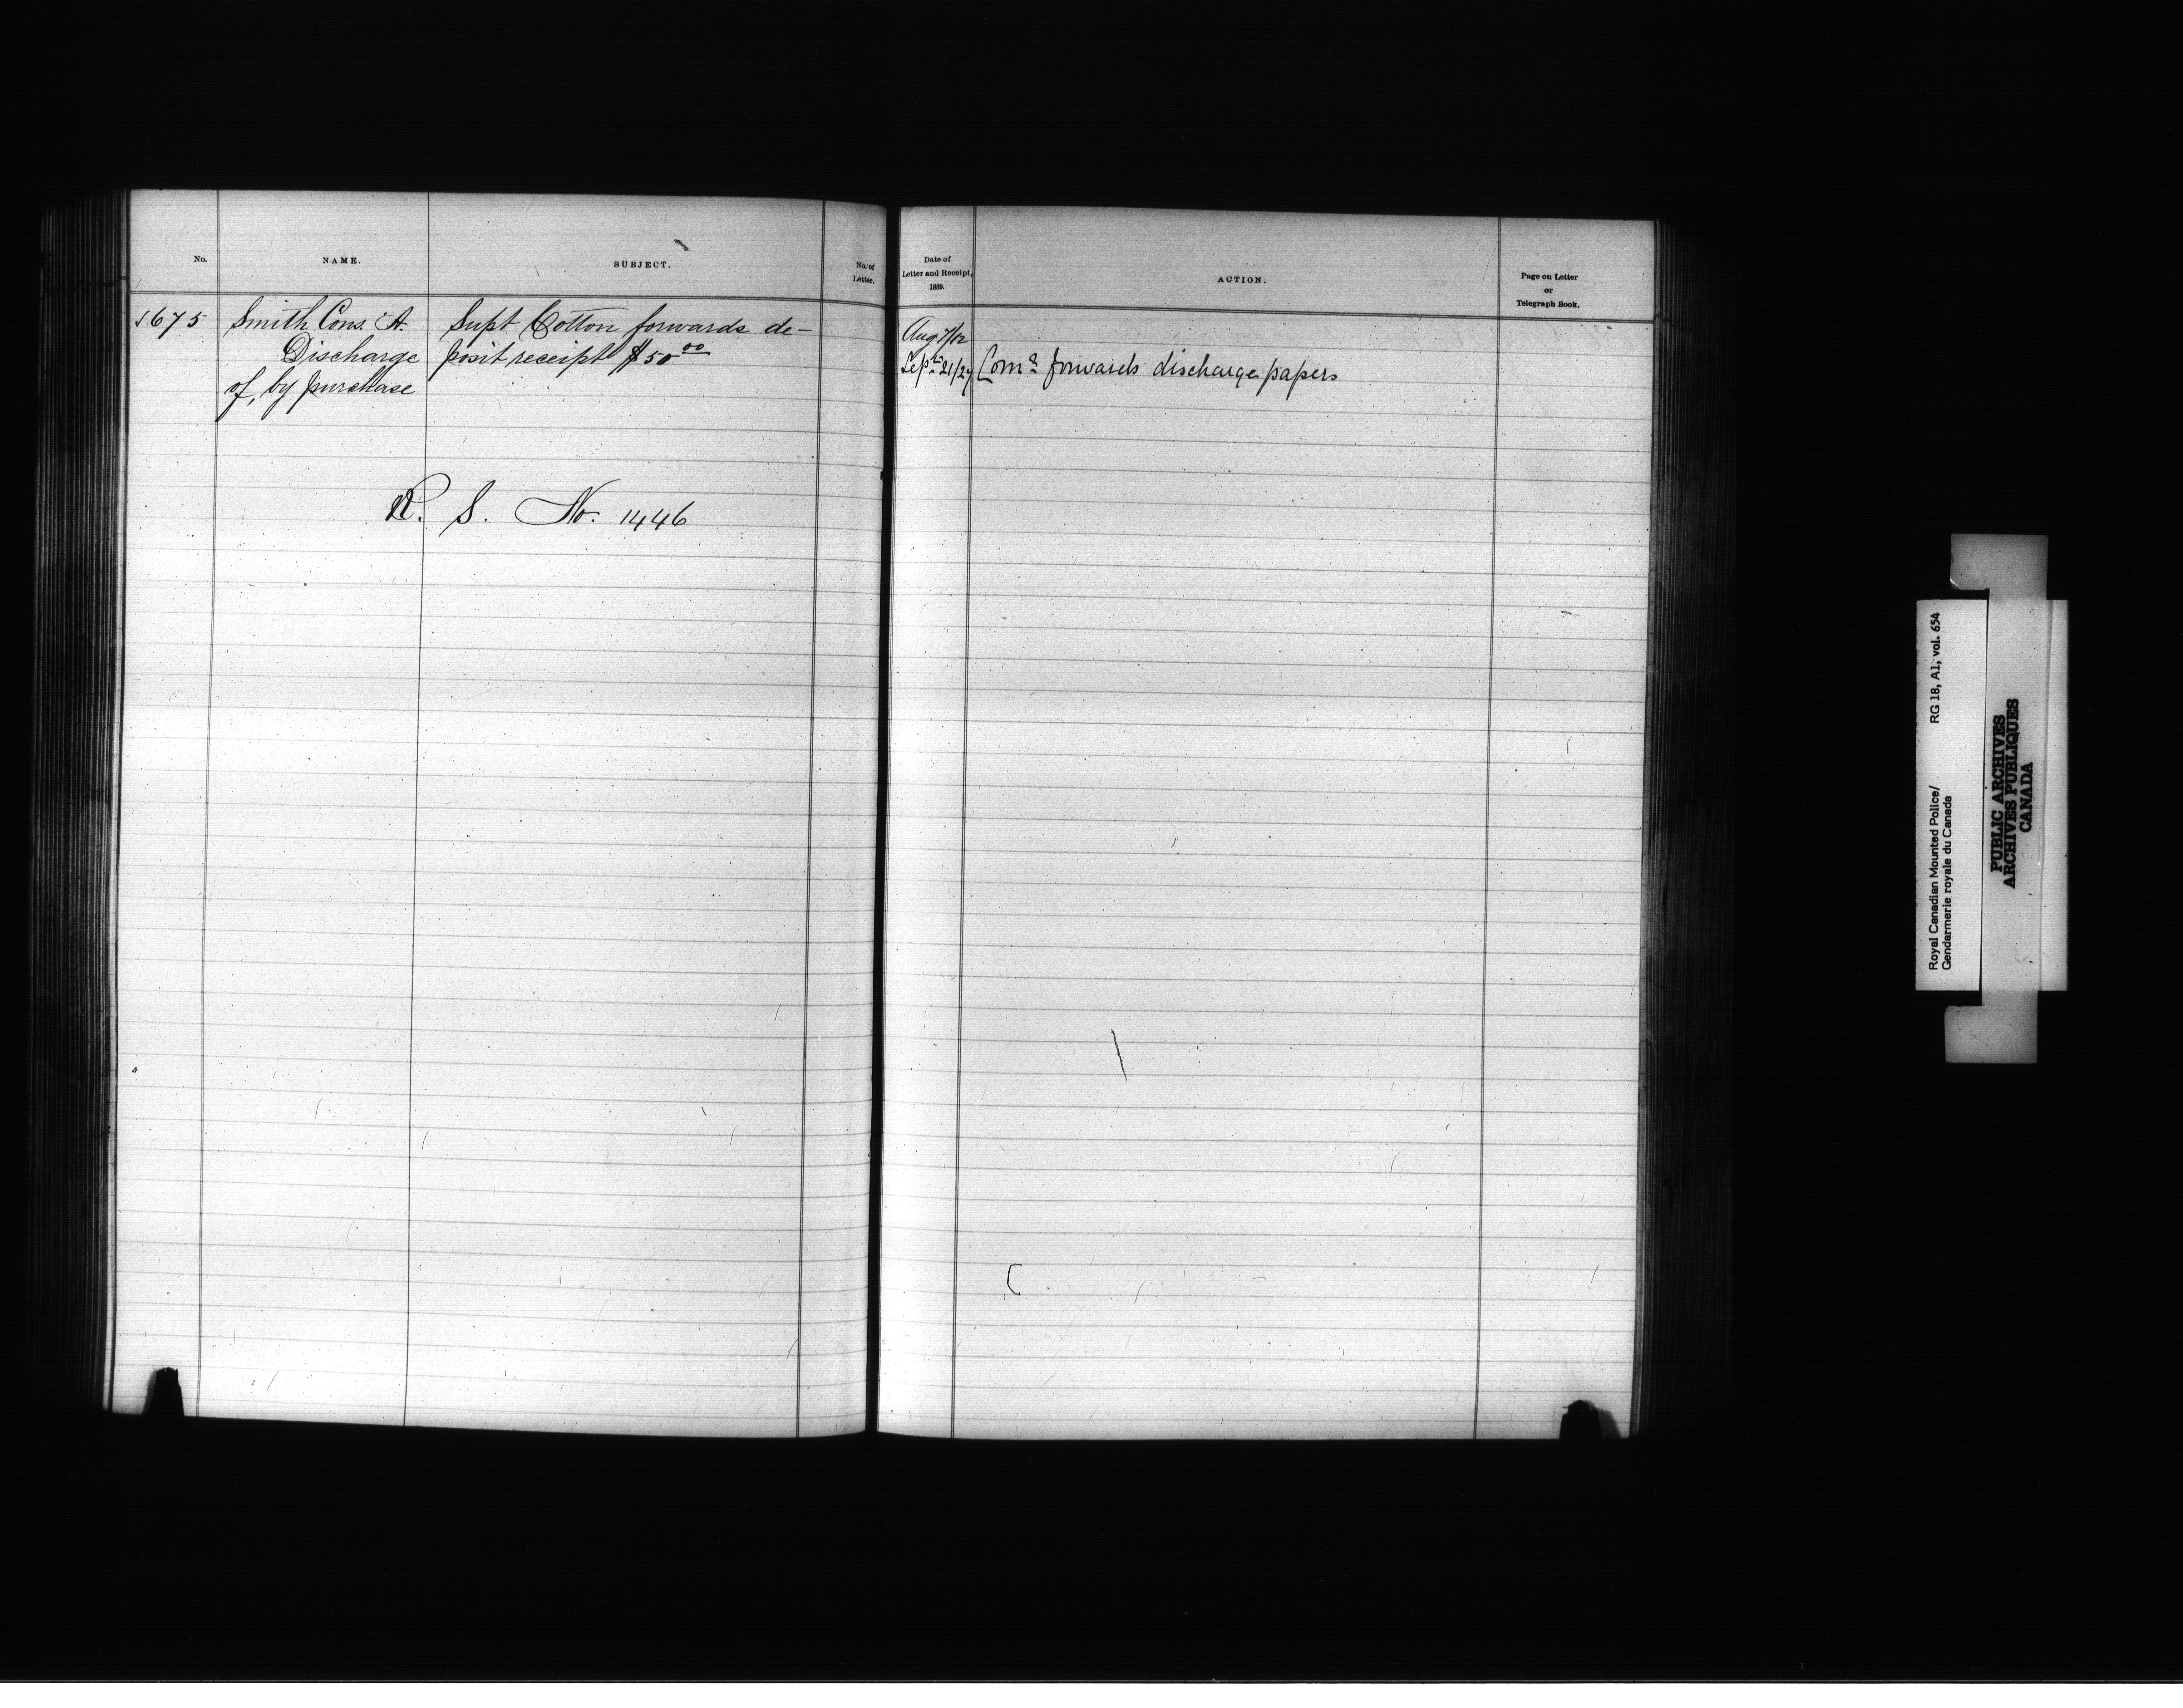 No.
NAME.
SUBJECT.
No. of
Letter.
1675
Smith Cons. A.
Discharge
of, by purchase
Supt Cotton forwards de-
posit receipt $50 00
R. S. No. 1446
Date of
Letter and Receipt,
1889.
ACTION.
Page on Letter
or
Telegraph Book.
Aug 7/12
Sept 21/27 Comr forwards discharge papers
Royal Canadian Mounted Police/ RG 18, A1, vol. 654
Gendarmerie royale du Canada
PUBLIC ARCHIVES
ARCHIVES PUBLIQUES
CANADA